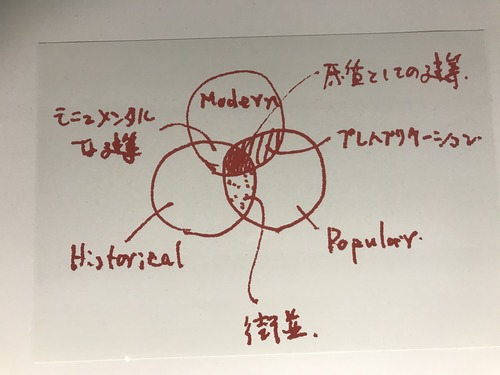 Modern
原質としての建築.
モニュメンタル
な建築
プレハブリケーション
Historical
Popular.
街並.